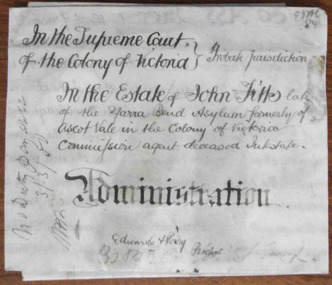 In the Supreme Court
of the Colony of Victoria } Probate Jurisdiction
In the Estate of John Fitts late
of the Yarra Bend Asylum formerly of
Ascot Vale in the Colony of Victoria
Commission agent deceased Intestate.
Administration
Edwards
Proctor
No Duty